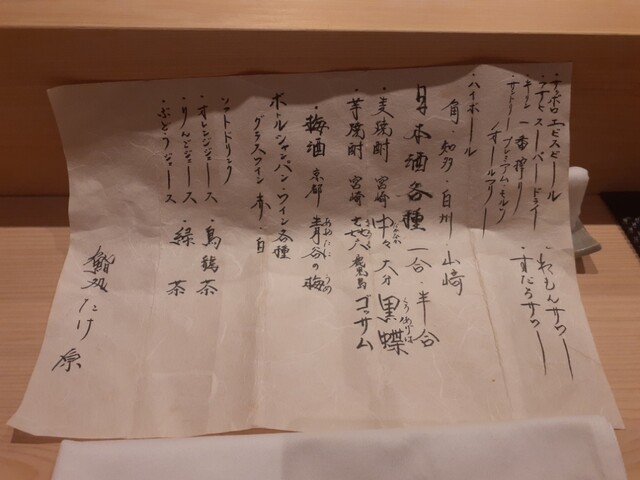 ・サッポロ エビスビール
・アサヒ スーパードライ
・キリン 一番搾り
・サントリー プレミアム・モルツ
オールフリー
・れもんサワー
・すだちサワー
・ハイボール
角・知多・白州・山崎
日本酒各種 一合・半合
・麦焼酎 宮崎 中々 大分 黒蝶
・芋焼酎 宮崎 鹿児島 ゴッサム
・梅酒 京都 青谷の梅
ボトルシャンパン・ワイン各種
グラスワイン 赤・白
ソフトドリンク
・オレンジジュース ・烏龍茶
・りんごジュース ・緑茶
・ぶどうジュース
鮨 たけ原